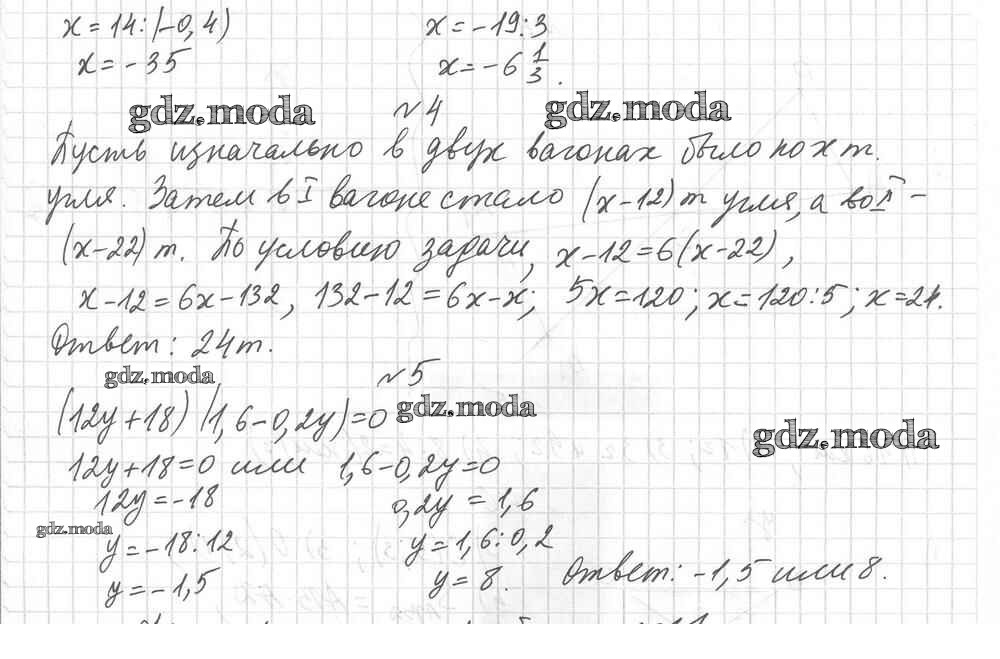 x=14:(-0,4) x=-19:3
x=-35 x=-6 1/3.
gdz.moda №4 gdz.moda
Пусть изначально в двух вагонах было по x т.
угля. Затем в I вагоне стало (x-12) т угля, а во II -
(x-22) т. По условию задачи, x-12=6(x-22),
x-12=6x-132, 132-12=6x-x; 5x=120; x=120:5; x=24.
Ответ: 24 т.
gdz.moda №5
(12y+18)(1,6-0,2y)=0 gdz.moda
gdz.moda
12y+18=0 или 1,6-0,2y=0
12y=-18 0,2y=1,6
gdz.moda
y=-18:12 y=1,6:0,2
y=-1,5 y=8. Ответ: -1,5 или 8.